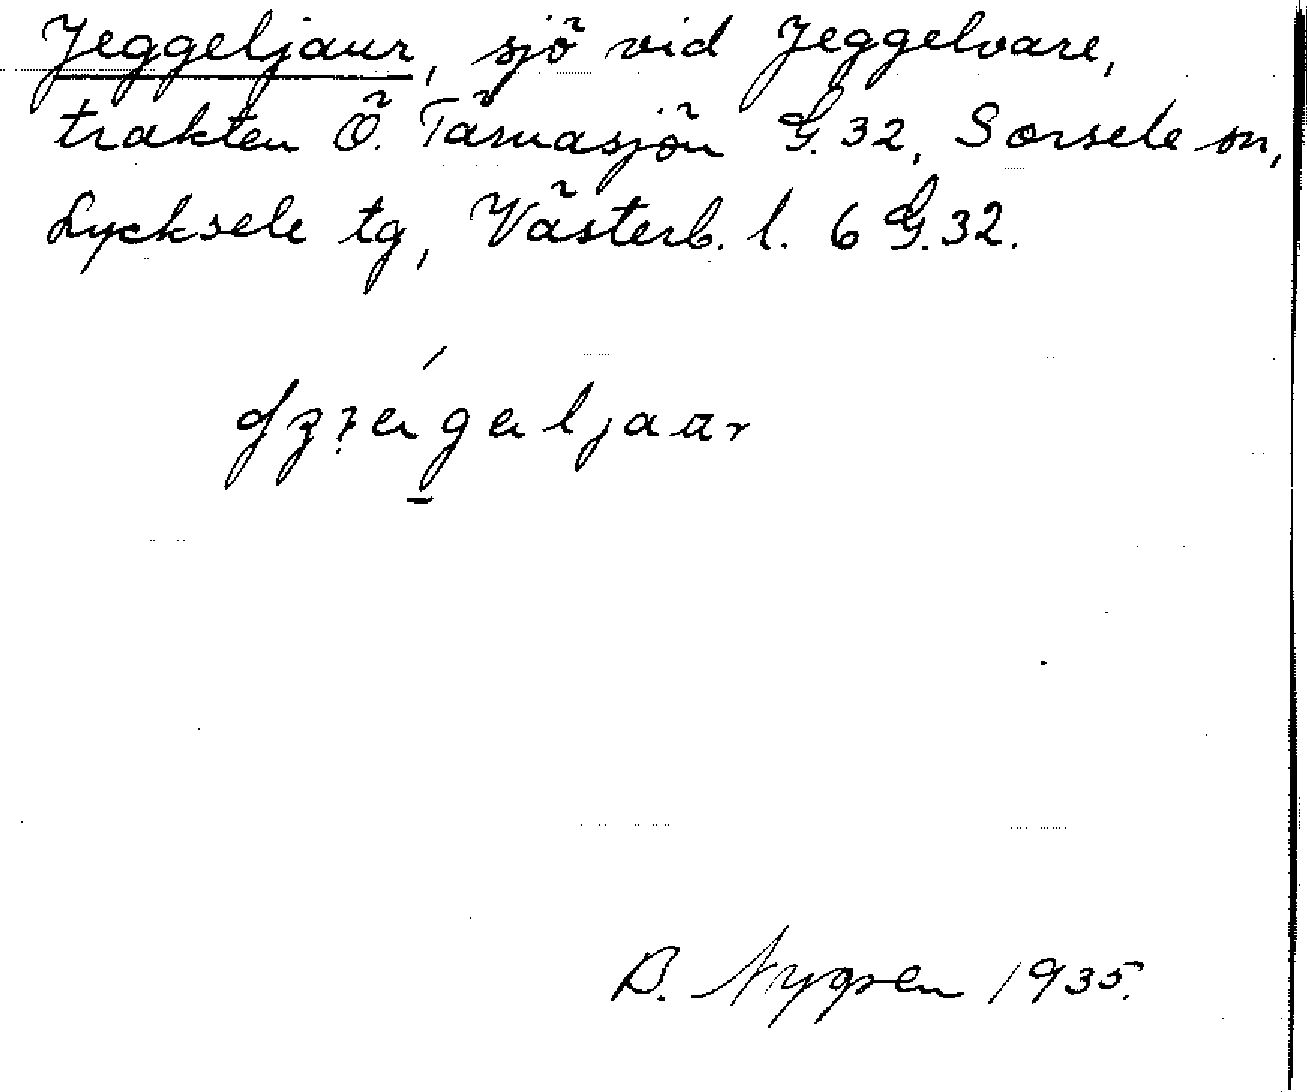 Jeggeljaur, sjö vid Jeggelvare,
trakten Ö. Tärnasjön G.32, Sorsele sn,
Lycksele tg, Västerb. l. 6 G.32.
B. Nygren 1935.